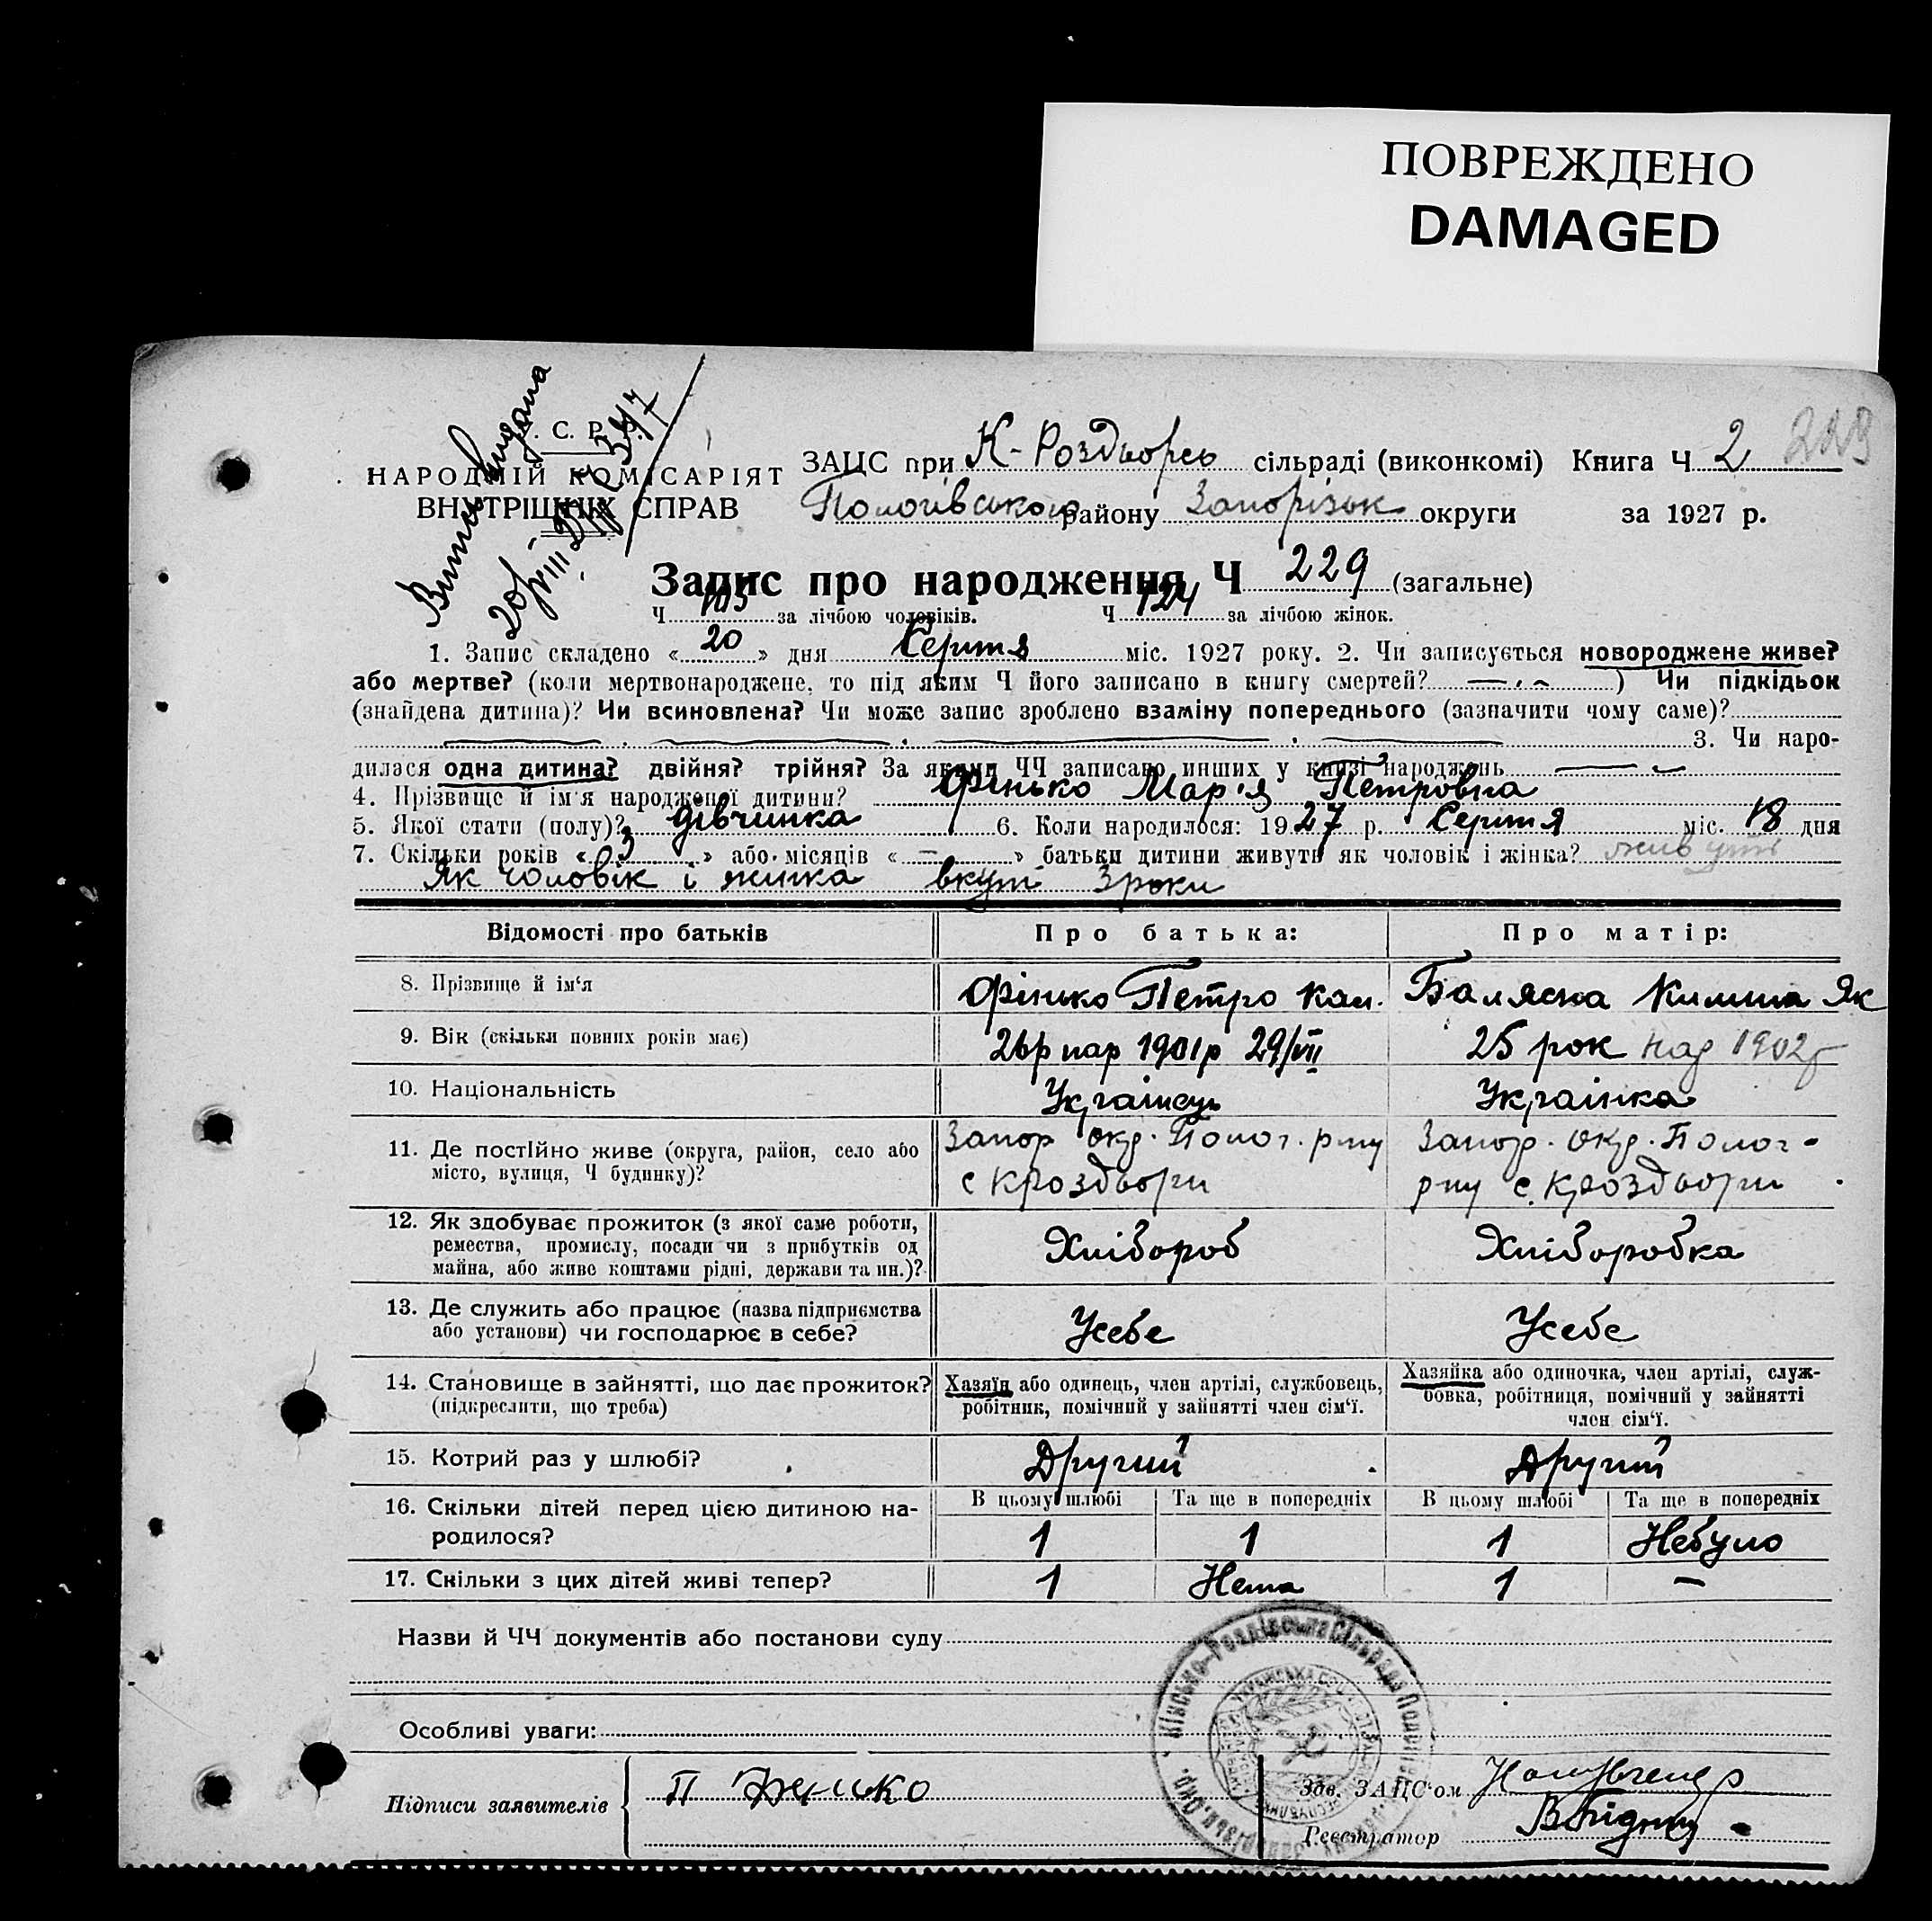 ПОВРЕЖДЕНО
DAMAGED
. С. Р. Р.
НАРОДНІЙ КОМІСАРІЯТ
ВНУТРІШНІХ СПРАВ
Випись видана
ЗАЦС при К-Роздорсь сільраді (виконкомі) Книга Ч 2 229
Пологівського району Запорізьк округи за 1927 р.
Запис про народження Ч 229 (загальне)
Ч 105 за лічбою чоловіків. Ч 124 за лічбою жінок.
1. Запис складено « 20 » дня Серпня міс. 1927 року. 2. Чи записується новороджене живе?
або мертве? (коли мертвонароджене, то під яким Ч його записано в книгу смертей? ) Чи підкідьок
(знайдена дитина)? Чи всиновлена? Чи може запис зроблено взаміну попереднього (зазначити чому саме)?
3. Чи наро-
дилася одна дитина? двійня? трійня? За якими ЧЧ записано инших у книзі народжень
4. Прізвище й ім'я народженої дитини? Фінько Мар'я Петровна
5. Якої стати (полу)? дівчинка 6. Коли народилося: 1927 р. Серпня міс. 18 дня
7. Скільки років « 3 » або місяців « — » батьки дитини живуть як чоловік і жінка? живуть
Як чоловік і жинка вкупі 3 роки
Відомості про батьків Про батька: Про матір:
8. Прізвище й ім‘я Фінько Петро Кал. Балясна Килина Як
9. Вік (скільки повних років має) 26р нар 1901р 29/VII 25 рок нар 1902р
10. Національність Українець Українка
11. Де постійно живе (округа, район, село або Запор окр. Полог. рну Запор. окр. Полог-
місто, вулиця, Ч будинку)? с Кроздори рну с. Кроздори
12. Як здобуває прожиток (з якої саме роботи,
ремества, промислу, посади чи з прибутків од Хлібороб Хліборобка
майна, або живе коштами рідні, держави та ин.)?
13. Де служить або працює (назва підприємства Усебе Усебе
або установи) чи господарює в себе?
14. Становище в зайнятті, що дає прожиток? Хазяїн або одинець, член артілі, службовець, Хазяйка або одиночка, член артілі, служ-
(підкреслити, що треба) робітник, помічний у зайнятті член сім‘ї. бовка, робітниця, помічний у зайнятті
член сім‘ї.
15. Котрий раз у шлюбі? Другий Другий
16. Скільки дітей перед цією дитиною на- В цьому шлюбі Та ще в попередніх В цьому шлюбі Та ще в попередніх
родилося? 1 1 1 Небуло
17. Скільки з цих дітей живі тепер? 1 Нема 1 —
Назви й ЧЧ документів або постанови суду
Особливі уваги:
Підписи заявителів П Фінько Зав. ЗАЦС‘ом
Реєстратор